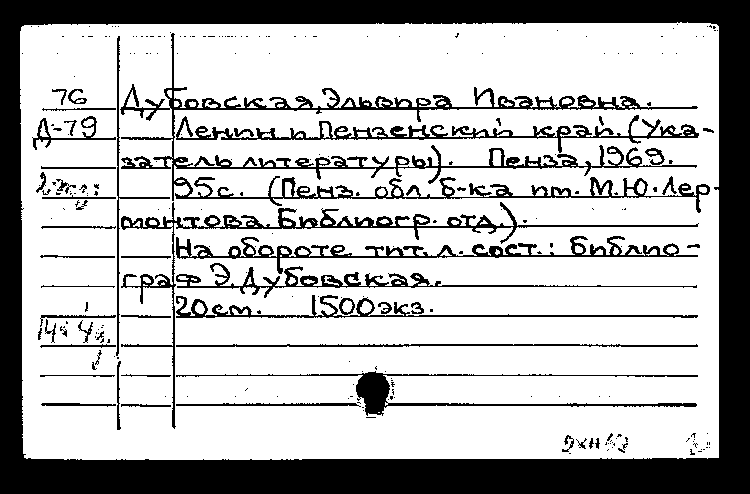 76 Дубовская, Эльвира Ивановна.
Д-79 Ленин и Пензенский край. (Ука-
затель литературы). Пенза, 1969.
95с. (Пенз. обл. б-ка им. М.Ю. Лер-
монтова. Библиогр. отд.).
На обороте тит. л. сост.: библио-
граф Э. Дубовская.
20см. 1500экз.